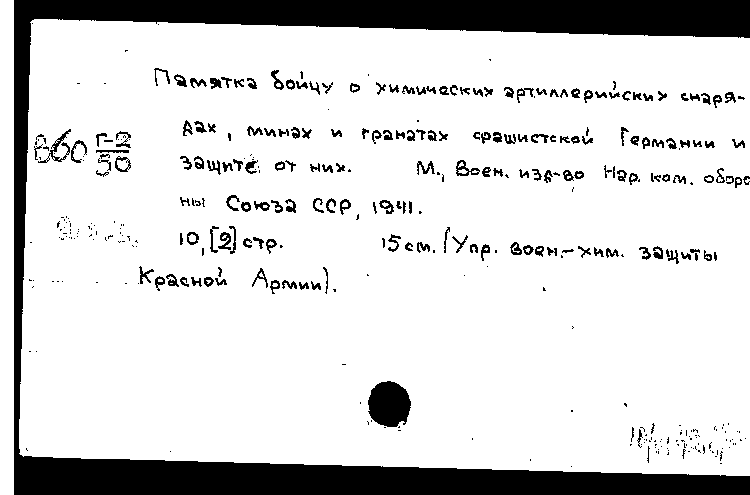 Памятка бойцу о химических артиллерийских снаря-
дах, минах и гранатах фашистской Германии и
В60 Г-2/50
защите от них. М., Воен. изд-во Нар. ком. оборо
ны Союза ССР, 1941.
10, [2] стр. 15 см. (Упр. воен.-хим. защиты
Красной Армии).